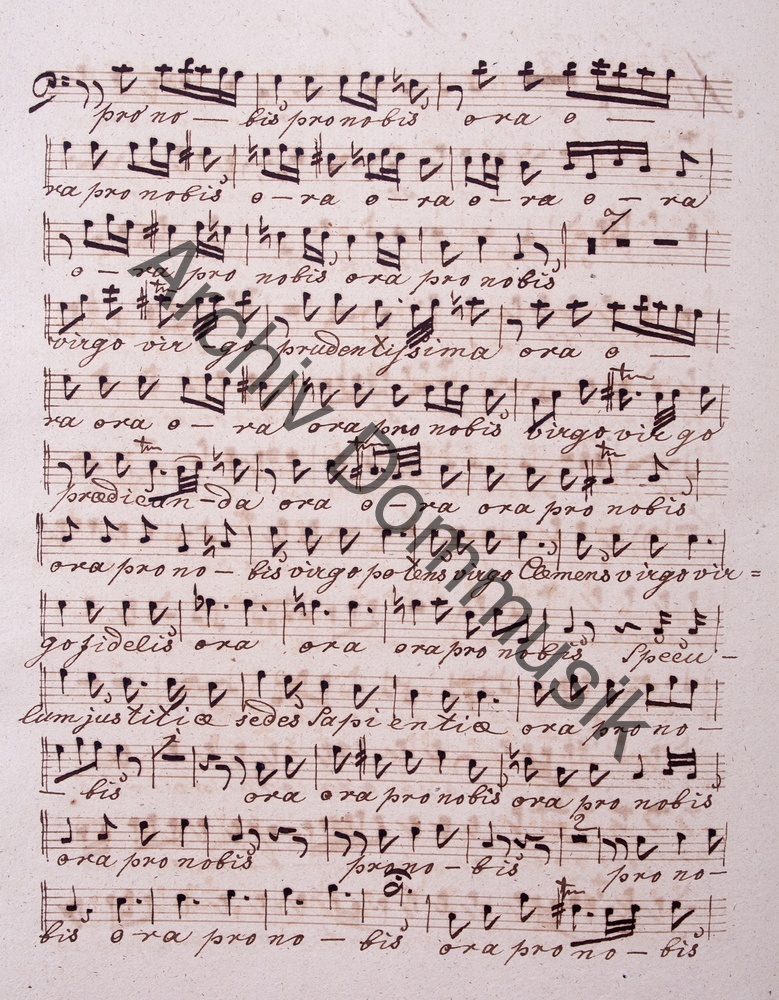 pro no — bis pro nobis ora o —
ra pro nobis o – ra o – ra o – ra o – ra
o – ra pro nobis ora pro nobis
7
virgo vir – go prudentissima ora o —
ra ora o – ra ora pro nobis virgo vir go
prædican – da ora o – ra ora pro nobis
ora pro no – bis virgo potens virgo Clemens virgo vir =
go fidelis ora ora ora pro nobis Specu –
lum justitiæ sedes Sapientiæ ora pro no –
1
– bis ora ora pro nobis ora pro nobis
2
ora pro nobis pro no – bis pro no –
bis o ra pro no – bis ora pro no – bis
Archiv Dommusik